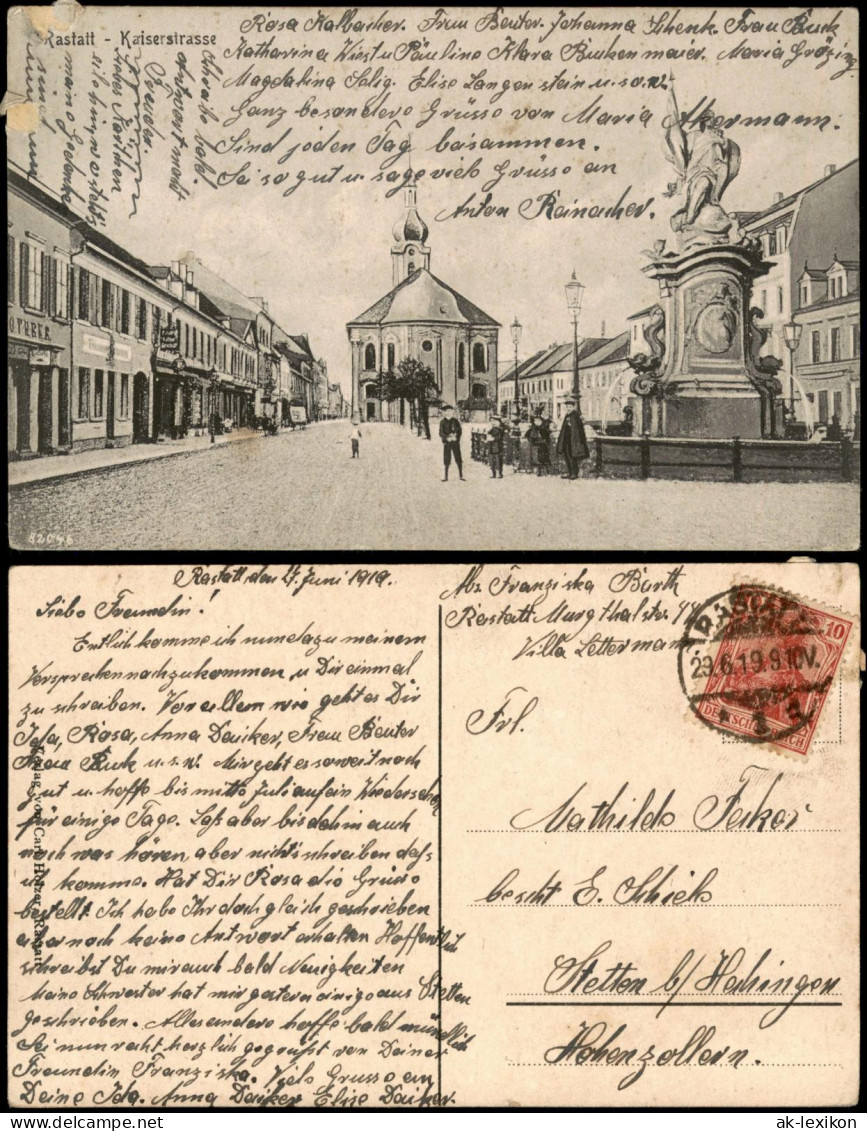 Rastatt - Kaiserstrasse
Rosa Kalbacher. Frau Beuter. Johanna Schenk. Frau Buck
Katharina Wiest u Pauline Klara Burkenmaier. Maria Grözing
Magdalina Salig. Elise Langenstein u.s.w.
Ganz besondere Grüsse von Maria Akermann.
Sind jeden Tag beisammen.
Sei so gut u. sage viele Grüsse an
Anton Rainacher.
Schreibe bald.
Antwort macht
Freude.
OTHEKE
82046
Rastatt den 27. Juni 1919.
Liebe Freundin!
Entlich komme ich nun dazu meinem
Versprechen nachzukommen, u Dir einmal
zu schreiben. Vor allem wie geht es Dir
Ida, Rosa, Anna Daiker, Frau Beuter
Frau Buck u.s.w. Mir geht es soweit noch
gut u. hoffe bis mitte Juli auf ein Wiedersehen
für einige Tage. Laß aber bis dahin auch
noch was hören, aber nichts schreiben daß
ich komme. Hat Dir Rosa die Grüße
bestellt. Ich habe Ihr doch gleich geschrieben
aber noch keine Antwort erhalten Hoffentlich
schreibst Du mir auch bald Neuigkeiten
Meine Schwester hat mir gestern einige aus Stetten
geschrieben. Alles andere hoffe bald mündlich
Sei nun recht herzlich gegrüßt von Deiner
Freundin Franziska. Viele Grüsse an
Deine Ida. Anna Daiker Elise Daiker.
Verlag von Carl Holzer, Rastatt
Abs Franziska Barth
Rastatt Murgthalstr. 44
Villa Letterman
RASTATT
29.6.19.9.10V.
10
DEUTSCHES REICH
Frl.
Mathilde Faker
bescht E. Schick
Stetten b/ Hechingen
Hohenzollern.
ak-lexikon.com